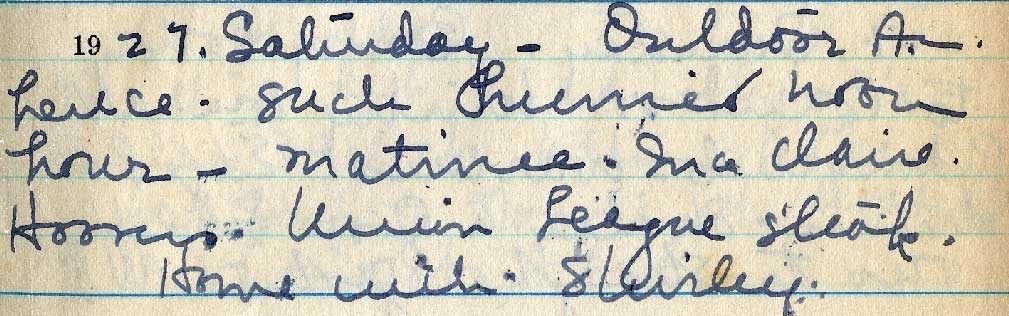 1927. Saturday - Outdoor A.
hence. such hurried noon
hour - matinee. Ina Claire.
Hooray. Union League steak.
Home with Shirley.